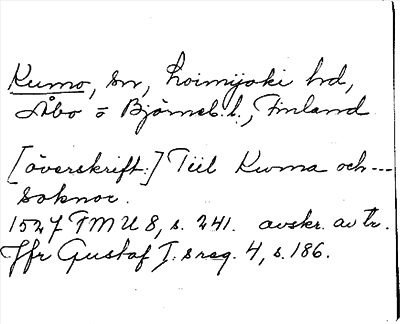 Kumo, sn, Loimijoki hd,
Åbo o Björneb. l., Finland
[överskrift:] Tiil Kwma och ---
Soknoe.
1527 FMU 8, s. 241. avskr. av tr.
Jfr Gustaf I:s reg. 4, s. 186.